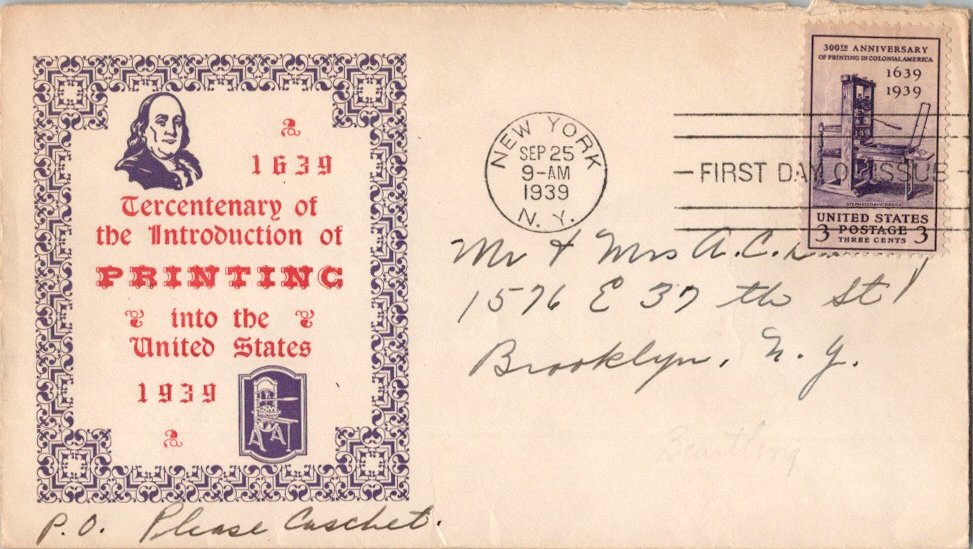 1639
Tercentenary of
the Introduction of
PRINTING
into the
United States
1939
P.O. Please Caschet.
NEW YORK
SEP 25
9-AM
1939
N.Y.
FIRST DAY OF ISSUE
300TH ANNIVERSARY
OF PRINTING IN COLONIAL AMERICA
1639
1939
UNITED STATES
3 POSTAGE 3
THREE CENTS
Mr & Mrs A.C.
1576 E 37 th St
Brooklyn, N.Y.